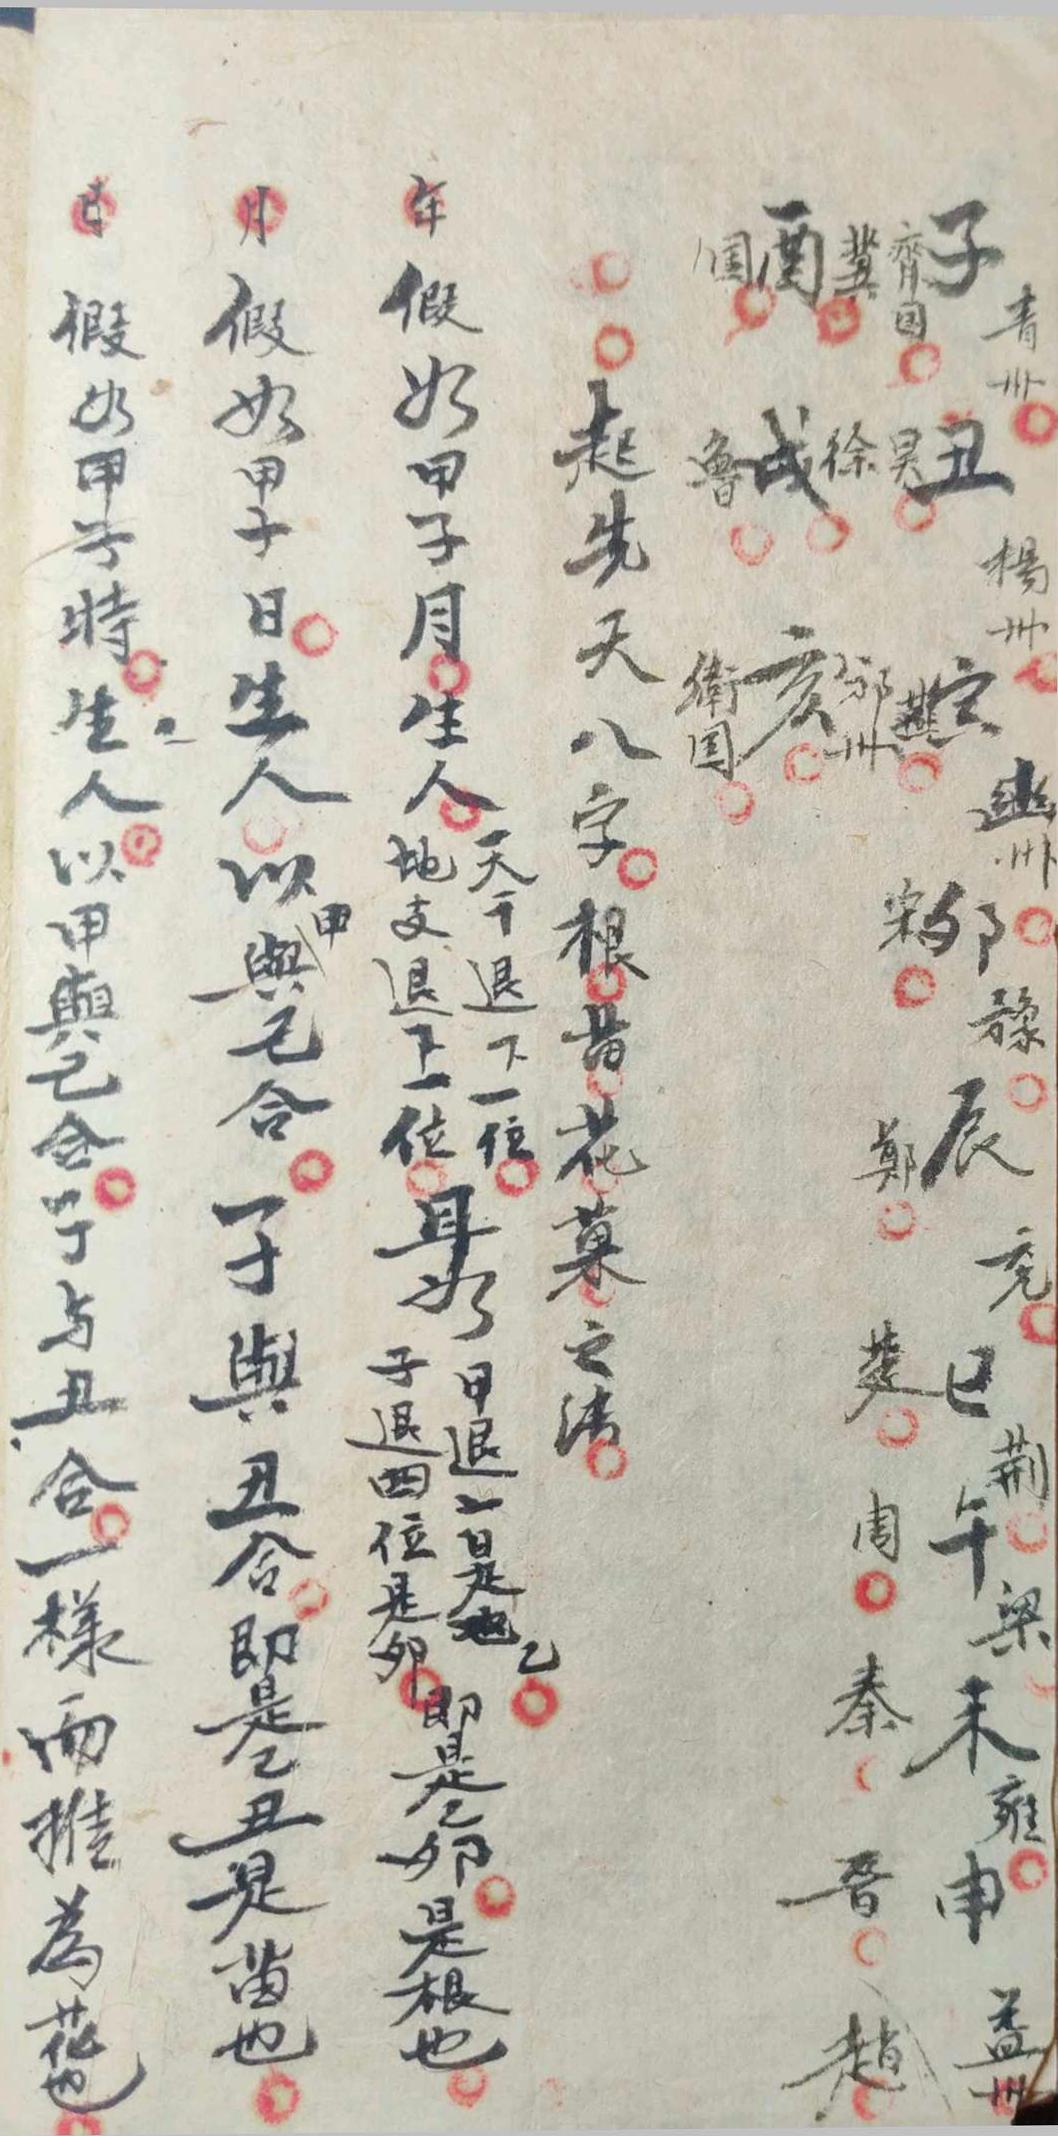 子 青州 丑 楊州 寅 幽州 卯 豫 辰 兗 巳 荊 午 梁 未 雍 申 益州
齊国 吴 燕 宋 鄭 楚 周 秦 晋 趙
酉 冀 戌 徐 亥 邠州
国 魯 衛国
起先天八字根苗花菓之法
年 假如甲子月生人天干退下一位地支退下一位耳如甲退一是乙子退四位是卯即是乙卯是根也
月 假如甲子日生人以甲與己合子與丑合即是己丑是苗也
日 假如甲子時生人以甲與己合子与丑合一樣而推為花也